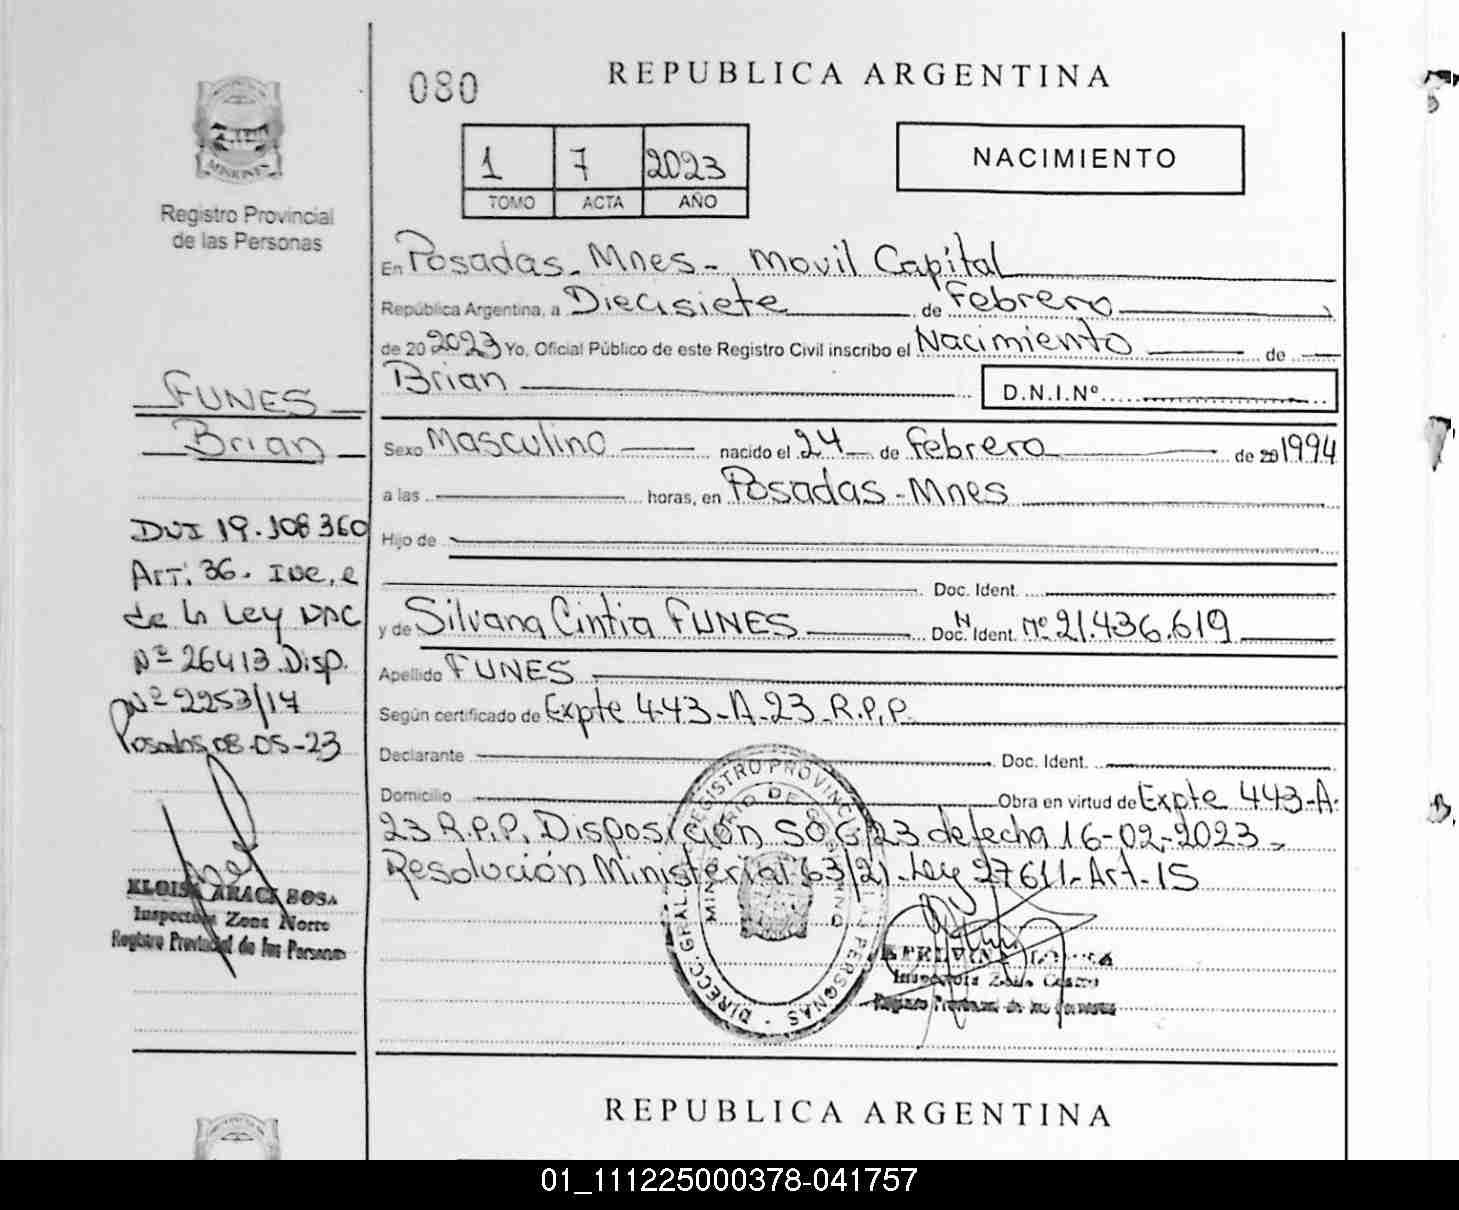 080
REPUBLICA ARGENTINA
1 7 2023
TOMO ACTA AÑO
NACIMIENTO
MISIONES
Registro Provincial
de las Personas
En Posadas - Mnes - Movil Capital
República Argentina, a Diecisiete de Febrero
de 20 2023 Yo, Oficial Público de este Registro Civil inscribo el Nacimiento de
Brian D.N.I.Nº
Sexo Masculino nacido el 24 de Febrero de 20 1994
a las horas, en Posadas - Mnes
Hijo de
Doc. Ident.
y de Silvana Cintia FUNES Doc. Ident. Nº 21.436.619
Apellido FUNES
Según certificado de Expte 443-A-23-R.P.P.
Declarante Doc. Ident.
Domicilio Obra en virtud de Expte 443-A-
23 R.P.P. Disposición 506/23 de fecha 16-02-2023 -
Resolución Ministerial 63/21 - Ley 27611 - Art - 15
FUNES
Brian
DNI 19.108360
Art. 36.
de la Ley NAC
Nº 26413 Disp.
Nº 2253/17
Posadas 08-05-23
SOSA
Inspectora Zona Norte
Registro Provincial de las Personas
DIRECC. GRAL. REGISTRO PROVINCIAL PERSONAS
Inspectora Zona Centro
Registro Provincial de las Personas
REPUBLICA ARGENTINA
01_111225000378-041757